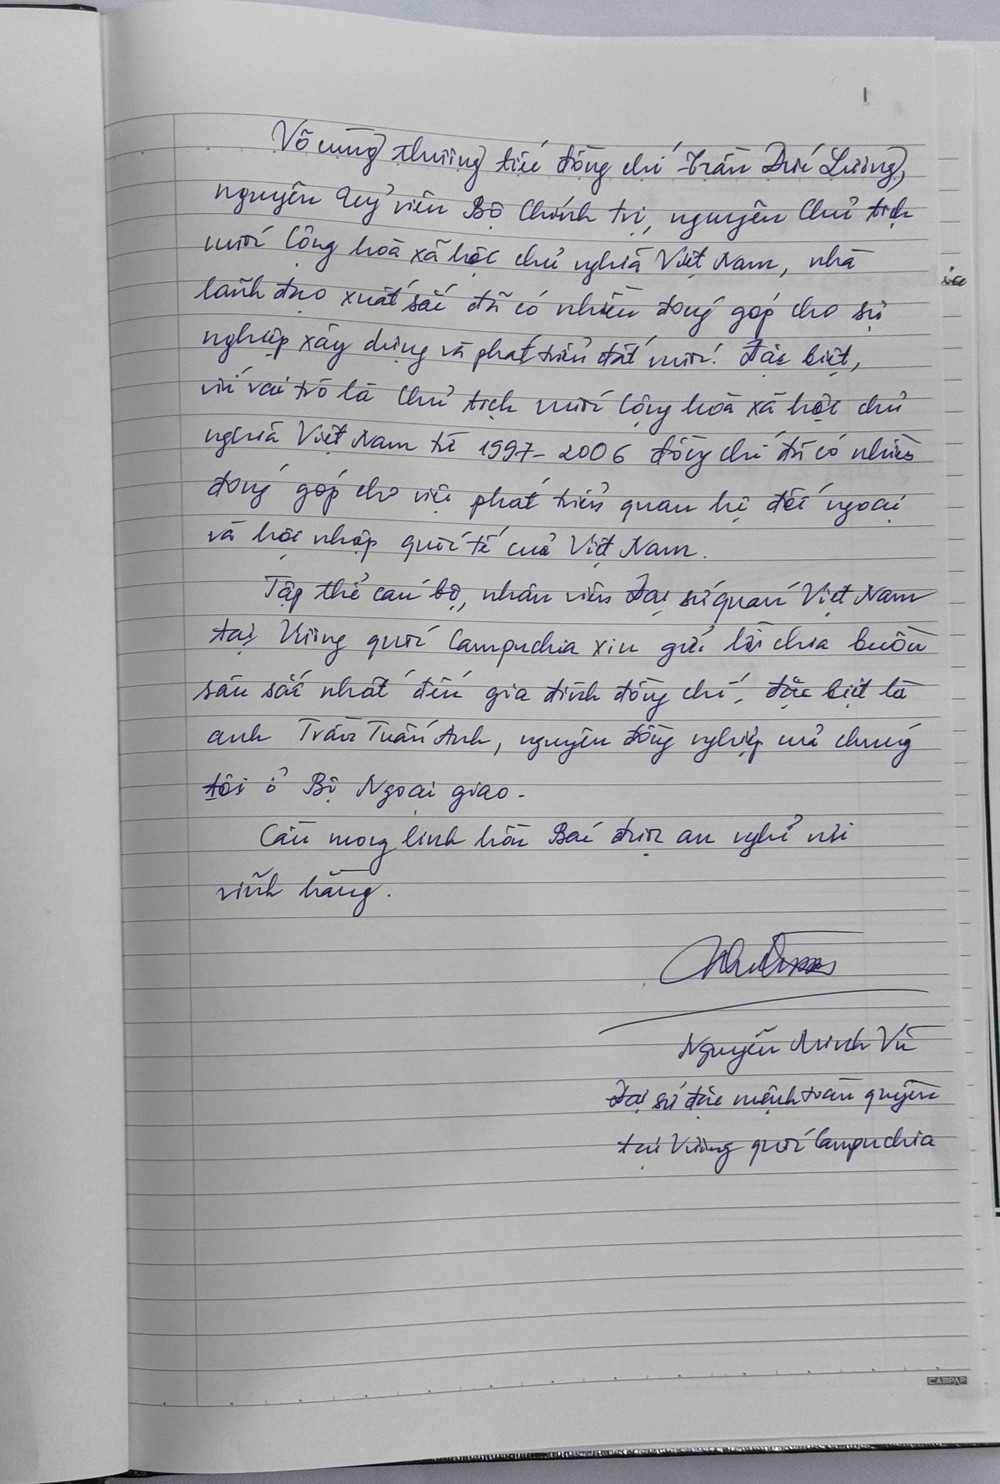 1
Vô cùng thương tiếc đồng chí Trần Đức Lương,
nguyên Uỷ viên Bộ Chính trị, nguyên Chủ tịch
nước Cộng hoà xã hội chủ nghĩa Việt Nam, nhà
lãnh đạo xuất sắc đã có nhiều đóng góp cho sự
nghiệp xây dựng và phát triển đất nước. Đặc biệt,
với vai trò là Chủ tịch nước Cộng hoà xã hội chủ
nghĩa Việt Nam từ 1997-2006 đồng chí đã có nhiều
đóng góp cho việc phát triển quan hệ đối ngoại
và hội nhập quốc tế của Việt Nam.
Tập thể cán bộ, nhân viên Đại sứ quán Việt Nam
tại Vương quốc Campuchia xin gửi lời chia buồn
sâu sắc nhất đến gia đình đồng chí, đặc biệt là
anh Trần Tuấn Anh, nguyên đồng nghiệp của chúng
tôi ở Bộ Ngoại giao.
Cầu mong linh hồn Bác được an nghỉ nơi
vĩnh hằng.
Nguyễn Minh Vũ
Đại sứ đặc mệnh toàn quyền
tại Vương quốc Campuchia
CABPAP